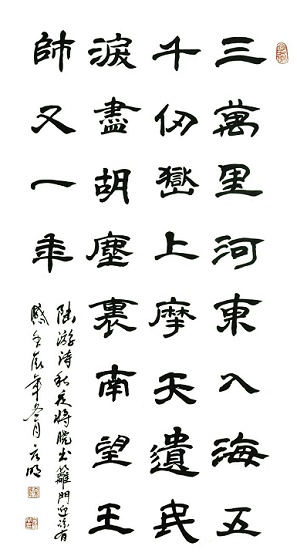 三萬里河東入海五
千仞嶽上摩天遺民
淚盡胡塵裏南望王
師又一年
陸游诗秋夜将晓出籬門迎涼有
感壬辰年冬月